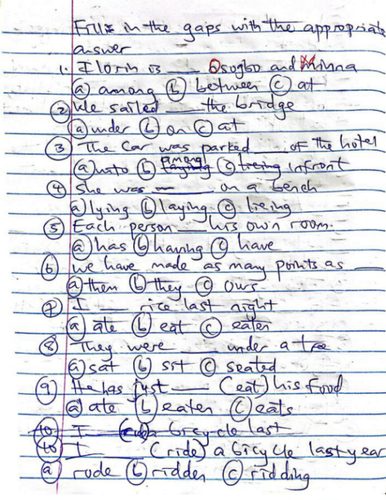 Fill in the gaps with the appropriate
answer
1. Ilorin is ___ Osogbo and Minna
(a) among (b) between (c) at
(2) We sailed ___ the bridge
(a) under (b) on (c) at
(3) The car was parked ___ of the hotel
(a) unto (b) among (c) infront
(4) She was ___ on a bench
(a) lying (b) laying (c) lieing
(5) Each person ___ his own room.
(a) has (b) having (c) have
(6) We have made as many points as ___
(a) them (b) they (c) ours
(7) I ___ rice last night
(a) ate (b) eat (c) eaten
(8) They were ___ under a tree
(a) sat (b) sit (c) seated
(9) He has just ___ (eat) his food
(a) ate (b) eaten (c) eats
10. I bicycle last
10. I ___ (ride) a bicycle last year
(a) rode (b) ridden (c) ridding